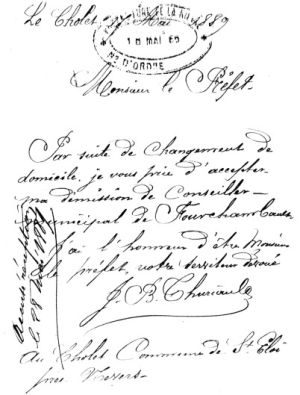 Le Cholet Mai 1889
PRÉFECTURE DE LA NIÈVRE
18 MAI 89
N° D'ORDRE
Monsieur le Préfet
Par suite de changement de
domicile je vous prie d'accepter
ma démission de Conseiller
municipal de Fourchambault
J'ai l'honneur d'être Monsieur
le préfet, votre serviteur dévoué
J. B. Thuriault
Au Cholet Commune de St Eloi
près Nevers
Accusé réception
le 28 Mai 1889